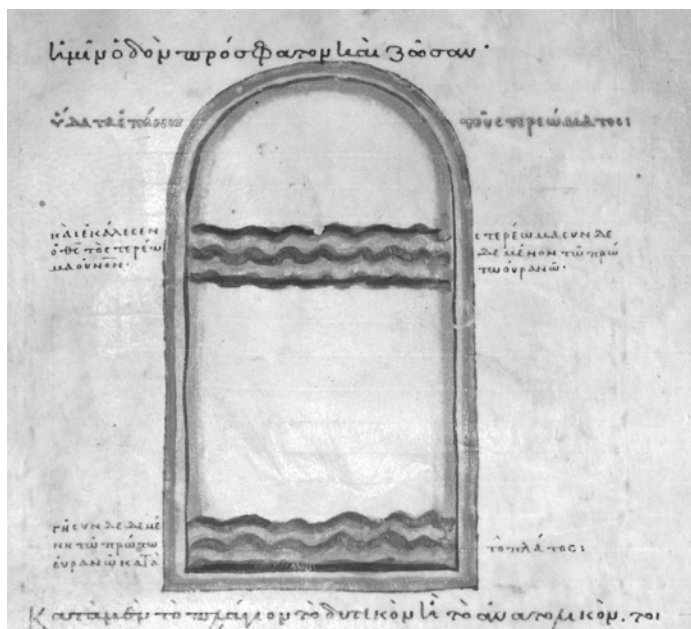 ἡμῖν ὁδὸν πρόσφατον καὶ ζῶσαν·
ὕδατα ἐπάνω τοῦ στερεώματος:
καὶ ἐκάλεσεν
ὁ θς τὸ στερέω
μα οὐνόν·
στερέωμα συνδε
δεμένον τῶ πρώ
τω οὐρανῶ·
γῆ συνδεδεμέ
νη τῶ πρώτω
οὐρανῶ κατὰ
τὸ πλάτος:
Κατὰ μὲν τὸ δυτικὸν καὶ τὸ ἀνατολικὸν. τοι